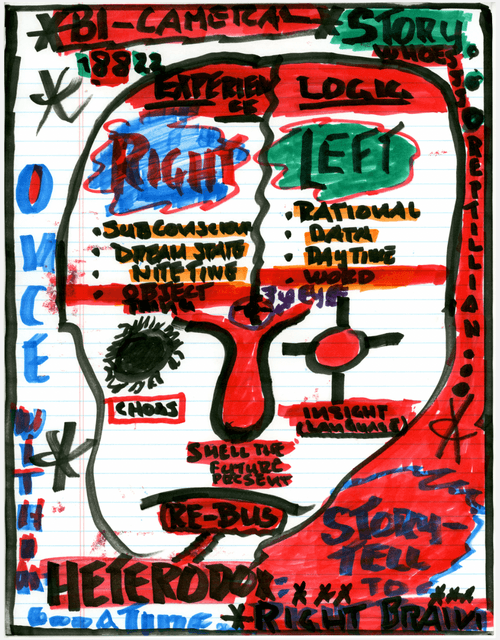 BI-CAMERAL
STORY.
WHOES
EXPERIEN
CE
LOGIC
RIGHT
LEFT
• SUBCONSCIOUS
• DREAM STATE
• NITE TIME
• OBJECT
• RATIONAL
• DATA
• DAYTIME
• WORD
3RD EYE
REPTILLIAN...
ONCE
WITHIN
CHOAS
INSIGHT
(LANGUAGE)
SMELL THE
FUTURE
PRESENT
RE-BUS
STORY-
TELL
TO
HETERODOX:
A TIME.
RIGHT BRAIN